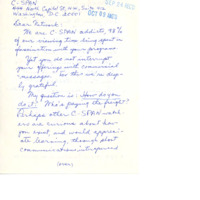 C-SPAN
444 North Capitol St. N.W., Suite 412
Washington, D.C. 20001
OCT 03 1983
Dear Network:
We are C-SPAN addicts, 98%
of our viewing time being spent in
fascination with your programs
Yet you do not interrupt
your offerings with commercial
messages. For this we're deep-
ly grateful.
My question is: How do you
do it? Who's paying the freight?
Perhaps other C-SPAN watch-
ers are curious about how
you exist, and would appreci-
ate learning, through short
communications interspersed
(over)